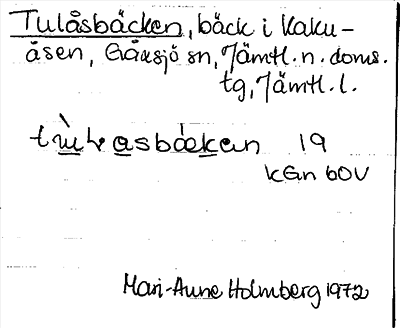 Tulåsbäcken, bäck i Kaku-
åsen, Gåxsjö sn, Jämtl. n. doms.
tg, Jämtl. l.
19
kGn 60V
Mari-Anne Holmberg 1972